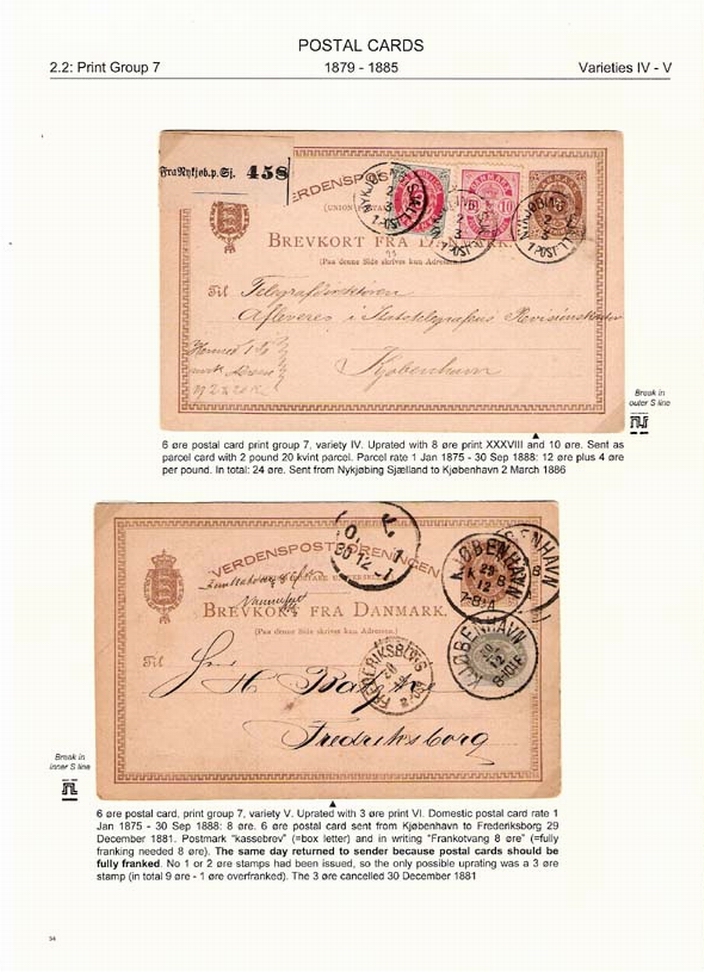 POSTAL CARDS
2.2: Print Group 7 1879 - 1885 Varieties IV - V
Fra Nykjøb.p.Sj. 458
VERDENSPOST
(UNION POSTA
BREVKORT FRA DANMARK.
(Paa denne Side skrives kun Adressen.)
Til Telegrafdirektøren
Afleveres i Statstelegrafens
Kjøbenhavn
NYKJØBING SJÆLL
2
3
1 POST
DANMARK
10
NYKJØBING SJÆLL
2
3
1 POST
Break in
outer S line
6 øre postal card print group 7, variety IV. Uprated with 8 øre print XXXVIII and 10 øre. Sent as
parcel card with 2 pound 20 kvint parcel. Parcel rate 1 Jan 1875 - 30 Sep 1888: 12 øre plus 4 øre
per pound. In total: 24 øre. Sent from Nykjøbing Sjælland to Kjøbenhavn 2 March 1886
VERDENSPOSTFORENINGEN
BREVKORT FRA DANMARK.
(Paa denne Side skrives kun Adressen.)
30 12
KJØBENHAVN
29
K B
12
7-8 A
KJØBENHAVN
12
8-10 E
FREDERIKSBORG
Til
H
Fredriksborg
Break in
inner S line
6 øre postal card, print group 7, variety V. Uprated with 3 øre print VI. Domestic postal card rate 1
Jan 1875 - 30 Sep 1888: 8 øre. 6 øre postal card sent from Kjøbenhavn to Frederiksborg 29
December 1881. Postmark "kassebrev" (=box letter) and in writing "Frankotvang 8 øre" (=fully
franking needed 8 øre). The same day returned to sender because postal cards should be
fully franked. No 1 or 2 øre stamps had been issued, so the only possible uprating was a 3 øre
stamp (in total 9 øre - 1 øre overfranked). The 3 øre cancelled 30 December 1881
54